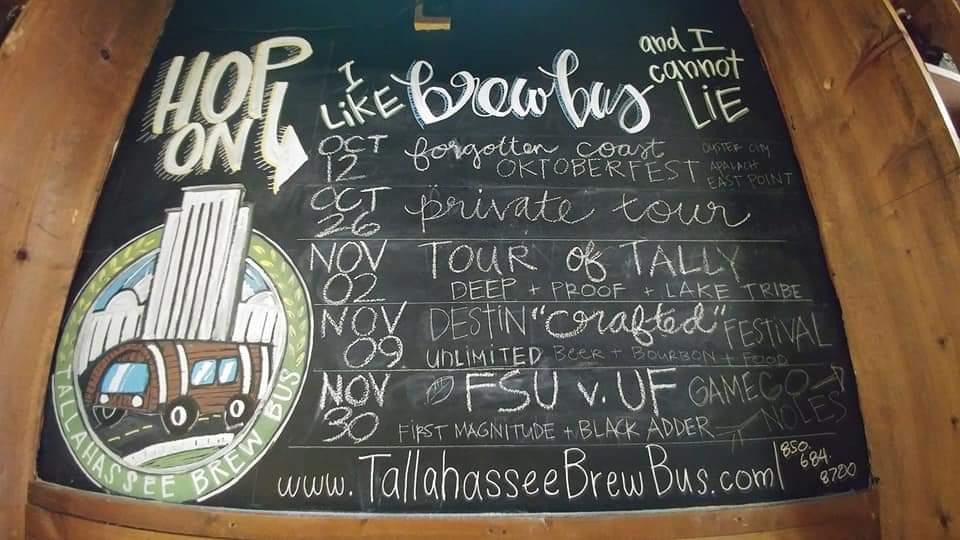 HOP
ON
I
LIKE
brew bus
and I
cannot
LIE
OCT
12
forgotten coast
OKTOBERFEST
OYSTER CITY
APALACH
EAST POINT
OCT
26
private tour
NOV
02
TOUR of TALLY
DEEP + PROOF + LAKE TRIBE
NOV
09
DESTIN "Crafted" FESTIVAL
UNLIMITED BEER + BOURBON + FOOD
NOV
30
FSU v. UF GAME
GO
NOLES
FIRST MAGNITUDE + BLACK ADDER
www.TallahasseeBrewBus.com
850.
684.
8700
TALLAHASSEE BREW BUS